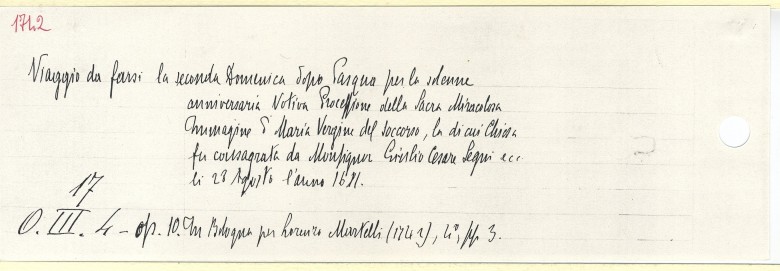 1742
Viaggio da farsi la seconda Domenica dopo Pasqua per la solenne
anniversaria Votiva Processione della Sacra Miracolosa
Immagine di Maria Vergine del Soccorso, la di cui Chiesa
fu consagrata da Monsignor Giulio Cesare Segni ecc
li 28 Agosto l'anno
17
O. III. 4 - op. 10. In Bologna per Lorenzo Martelli (1742), 4°, pp. 3.